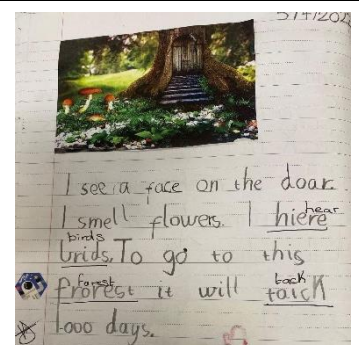 I see a face on the doar.
I smell flowers. I hiere
hear
birds
brids. To go to this
forest
frorest it will taick
tack
1000 days.